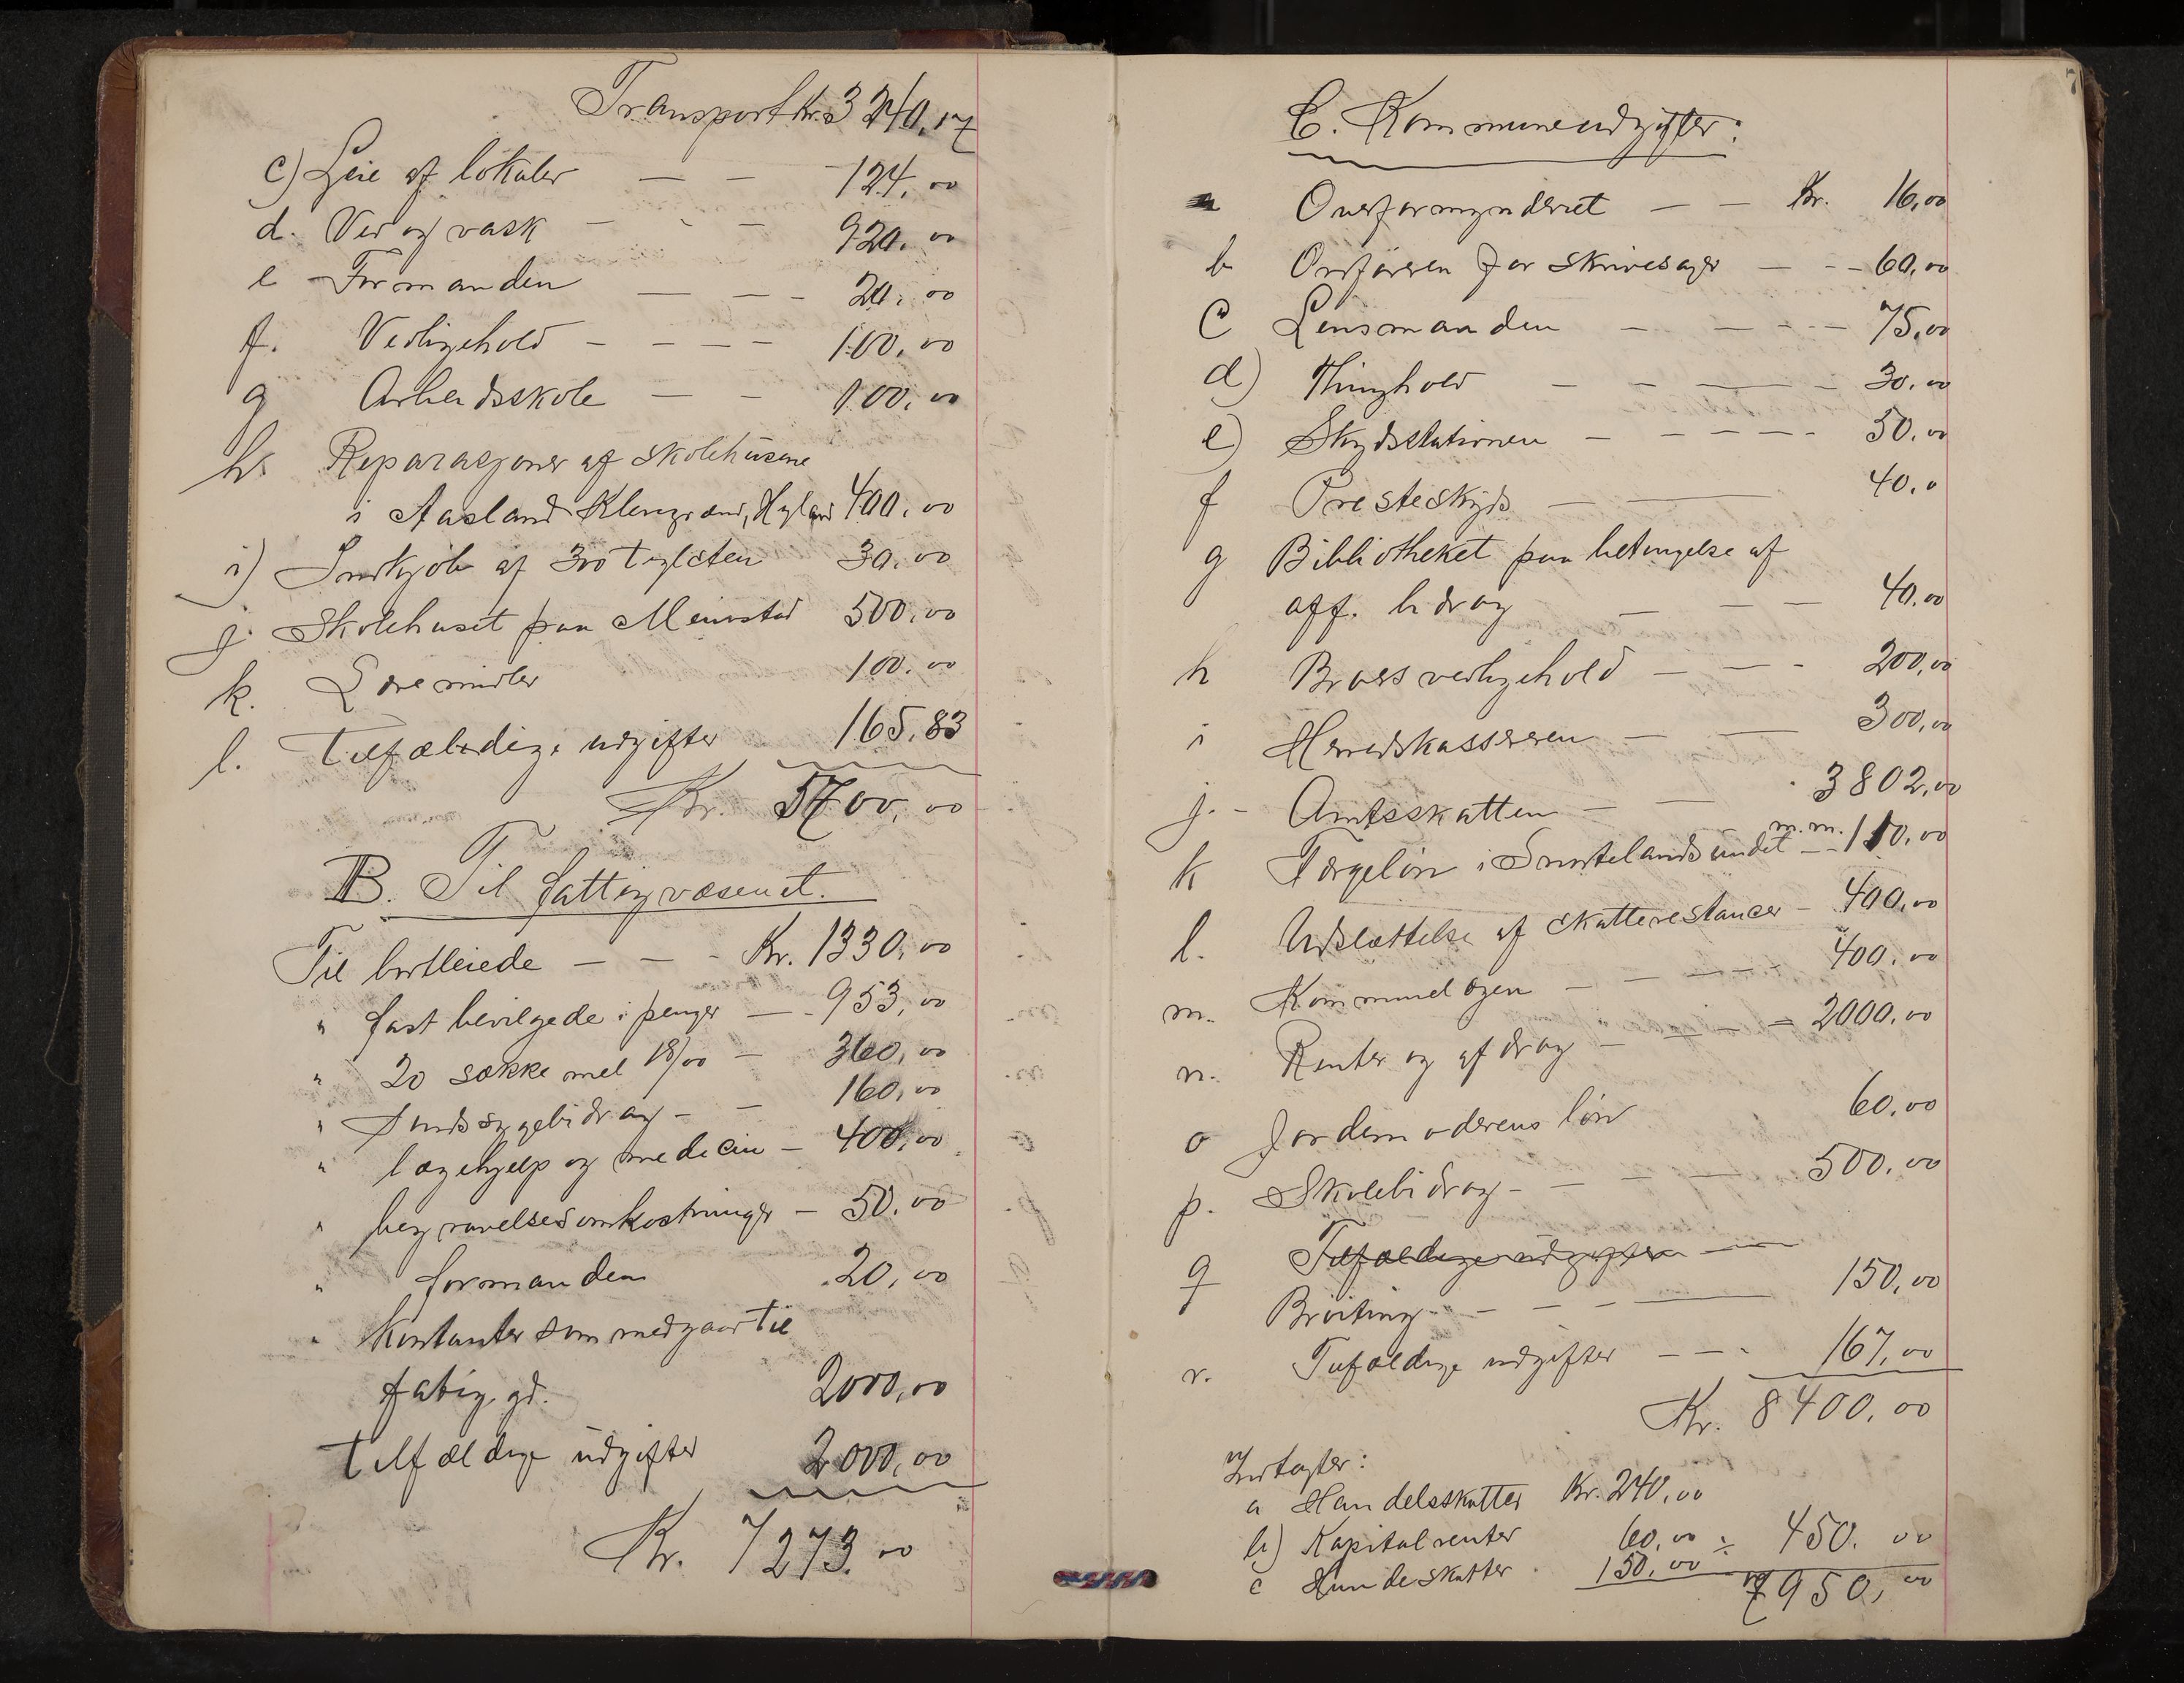 Transport Kr. 3240,17
c) Leie af lokaler — — 124,00
d. Ved og vask - - - 920,00
e Formanden — — - 20,00
f. Vedligehold - - — — 100,00
g Arbeidsskole — - 100,00
h. Reparasjoner af skolehusene
i Aasland Klengrand, Hyland 400,00
i) Indkjøb af 3 30,00
j. Skolehuset paa 500,00
k. Læremidler 100,00
l. Tilfældige udgifter 165,83
Kr. 5700,00
B. Til fattigvæsenet.
Til bortleiede — — - Kr. 1330,00
" fast bevilgede i penger — - 953,00
" 20 sække mel 18/00 — 360,00
" Sindssygebidrag - — 160,00
" lægehjælp og medicin — 400,00
" begravelsesomkostninger — 50,00
" formanden 20,00
" Kontanter som medgaar til
fatig. gd. 2000,00
Tilfældige udgifter 2000,00
Kr. 7273.00
7
C. Kommuneudgifter:
a Overformynderiet — — Kr. 16,00
b Ordføreren for skrivesager — - - 60,00
c Lensmanden - — - - - 75,00
d) Thinghold — - — - 30,00
e) Skydsstationen - - - - - 50,00
f Presteskyds — — 40,0
g Bibliotheket paa betingelse af
off. bidrag — — — 40,00
h Broers vedligehold — — - 200,00
i Herredskassereren — — 300,00
j. - Amtsskatten — — 3802,00
k Færgeløn i Snartelandssundet m.m. — - 110,00
l. Udslættelse af skatterestancer - 400,00
m. Kommunelægen — - - - 400,00
n. Renter og afdrag — — — 2000,00
o Jordemoderens løn 60,00
p. Skolebidrag - — — — 500,00
q Tilfældige udgifter — —
Brøiting - - - - — 150,00
r. Tilfældige udgifter — — - 167,00
Kr. 8400,00
Indtægter:
a Handelsskatter Kr. 240,00
b) Kapitalrenter 60,00 ÷ 450.00
c Hundeskatter 150,00
7950,00